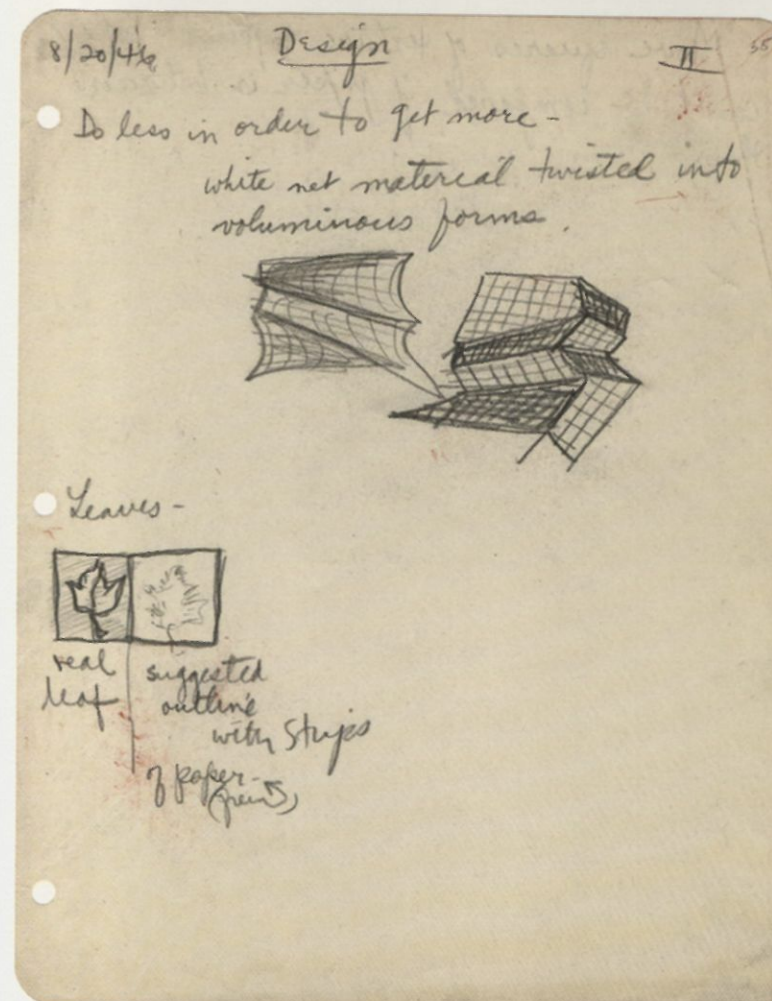 8/20/46
Design
II
55
Do less in order to get more -
white net material twisted into
voluminous forms.
Leaves -
real
leaf
suggested
outline
with strips
of paper -